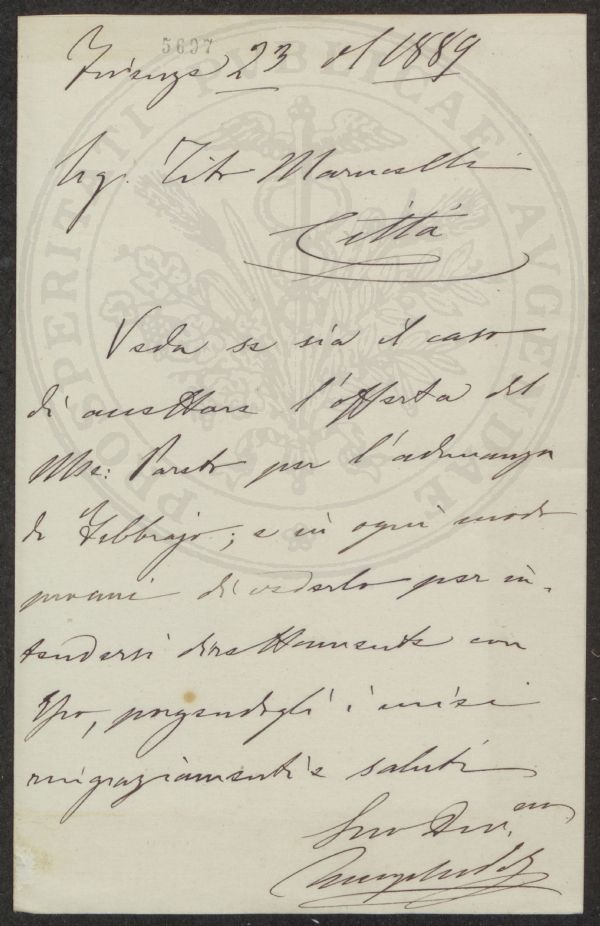 5697
Firenze 23 del 1889
PROSPERITATI PUBLICAE AVGENDAE
Sig. Tito Marucelli
Città
Veda se sia il caso
di accettare l'offerta del
Mse: Pareto per l'adunanza
di Febbrajo; e in ogni modo
procuri di vederlo per in-
tendersi direttamente con
Esso, porgendogli i miei
ringraziamenti e saluti
Suo Dev.mo